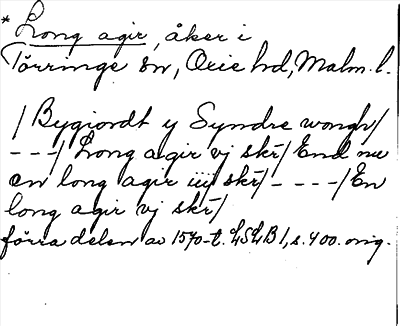 * Long agir, åker i
Törringe sn, Oxie hd, Malm. l.
/Bygiordt y Syndre wongh/
---/Long agir vj skr/ End nu
en long agir iiij skr/----/En
long agir vj skr/
förra delen av 1570-t. LSLB 1, s. 400. orig.